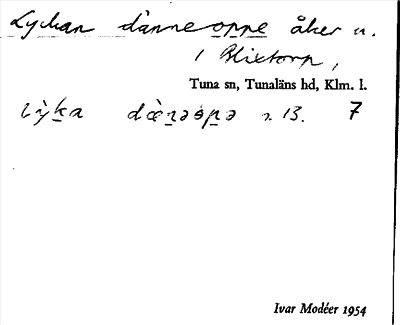 Lyckan dänneoppe åker u.
i Blixtorp,
Tuna sn, Tunaläns hd, Klm. l.
lỳka dæ̀nəɵpə r. 13. 7
Ivar Modéer 1954